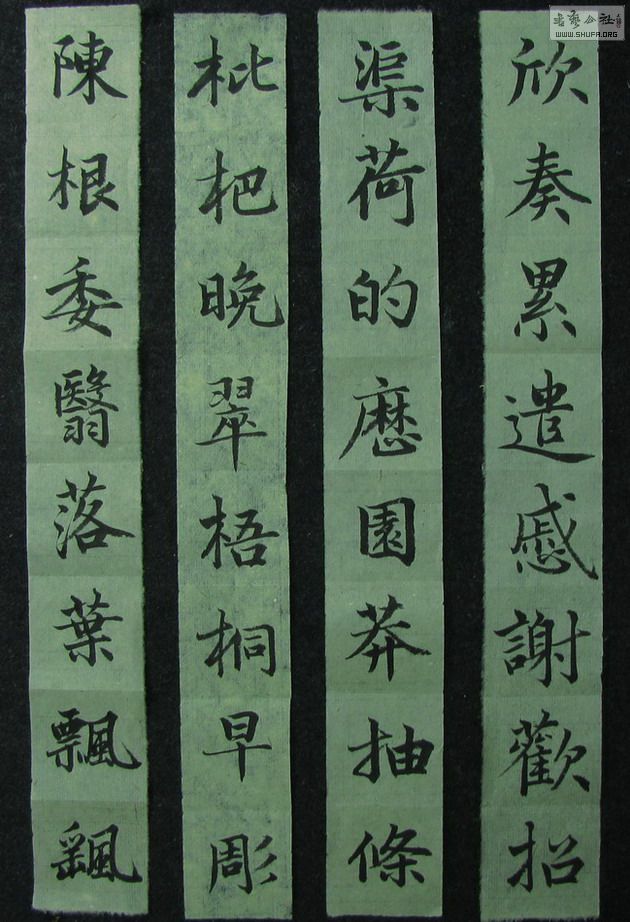 欣奏累遣慼謝歡招
渠荷的歷園莽抽條
枇杷晚翠梧桐早彫
陳根委翳落葉飄颻
WWW.SHUFA.ORG